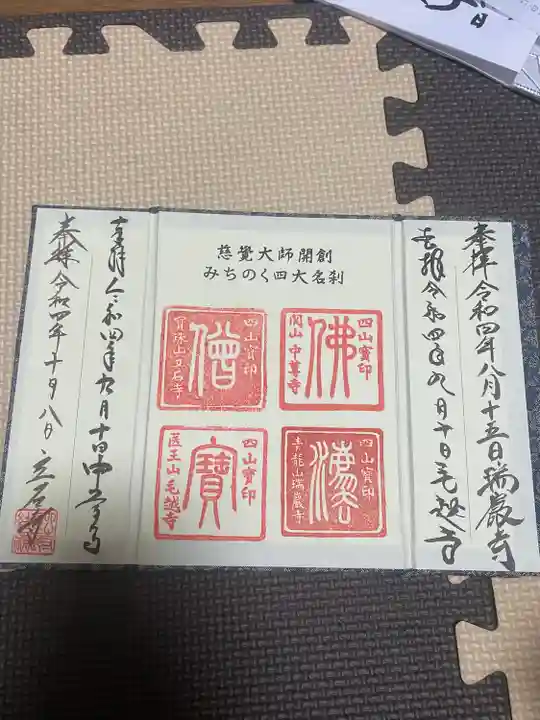 慈覺大師開創
みちのく四大名刹
奉拝 令和四年八月十五日 瑞巖寺
奉拝 令和四年九月十日 毛越寺
佛
四山寶印
関山 中尊寺
僧
四山寶印
寳珠山 立石寺
法
四山寶印
青龍山 瑞巖寺
寶
四山寶印
医王山 毛越寺
奉拝 令和四年九月十日 中尊寺
奉拝 令和四年十月八日 立石寺